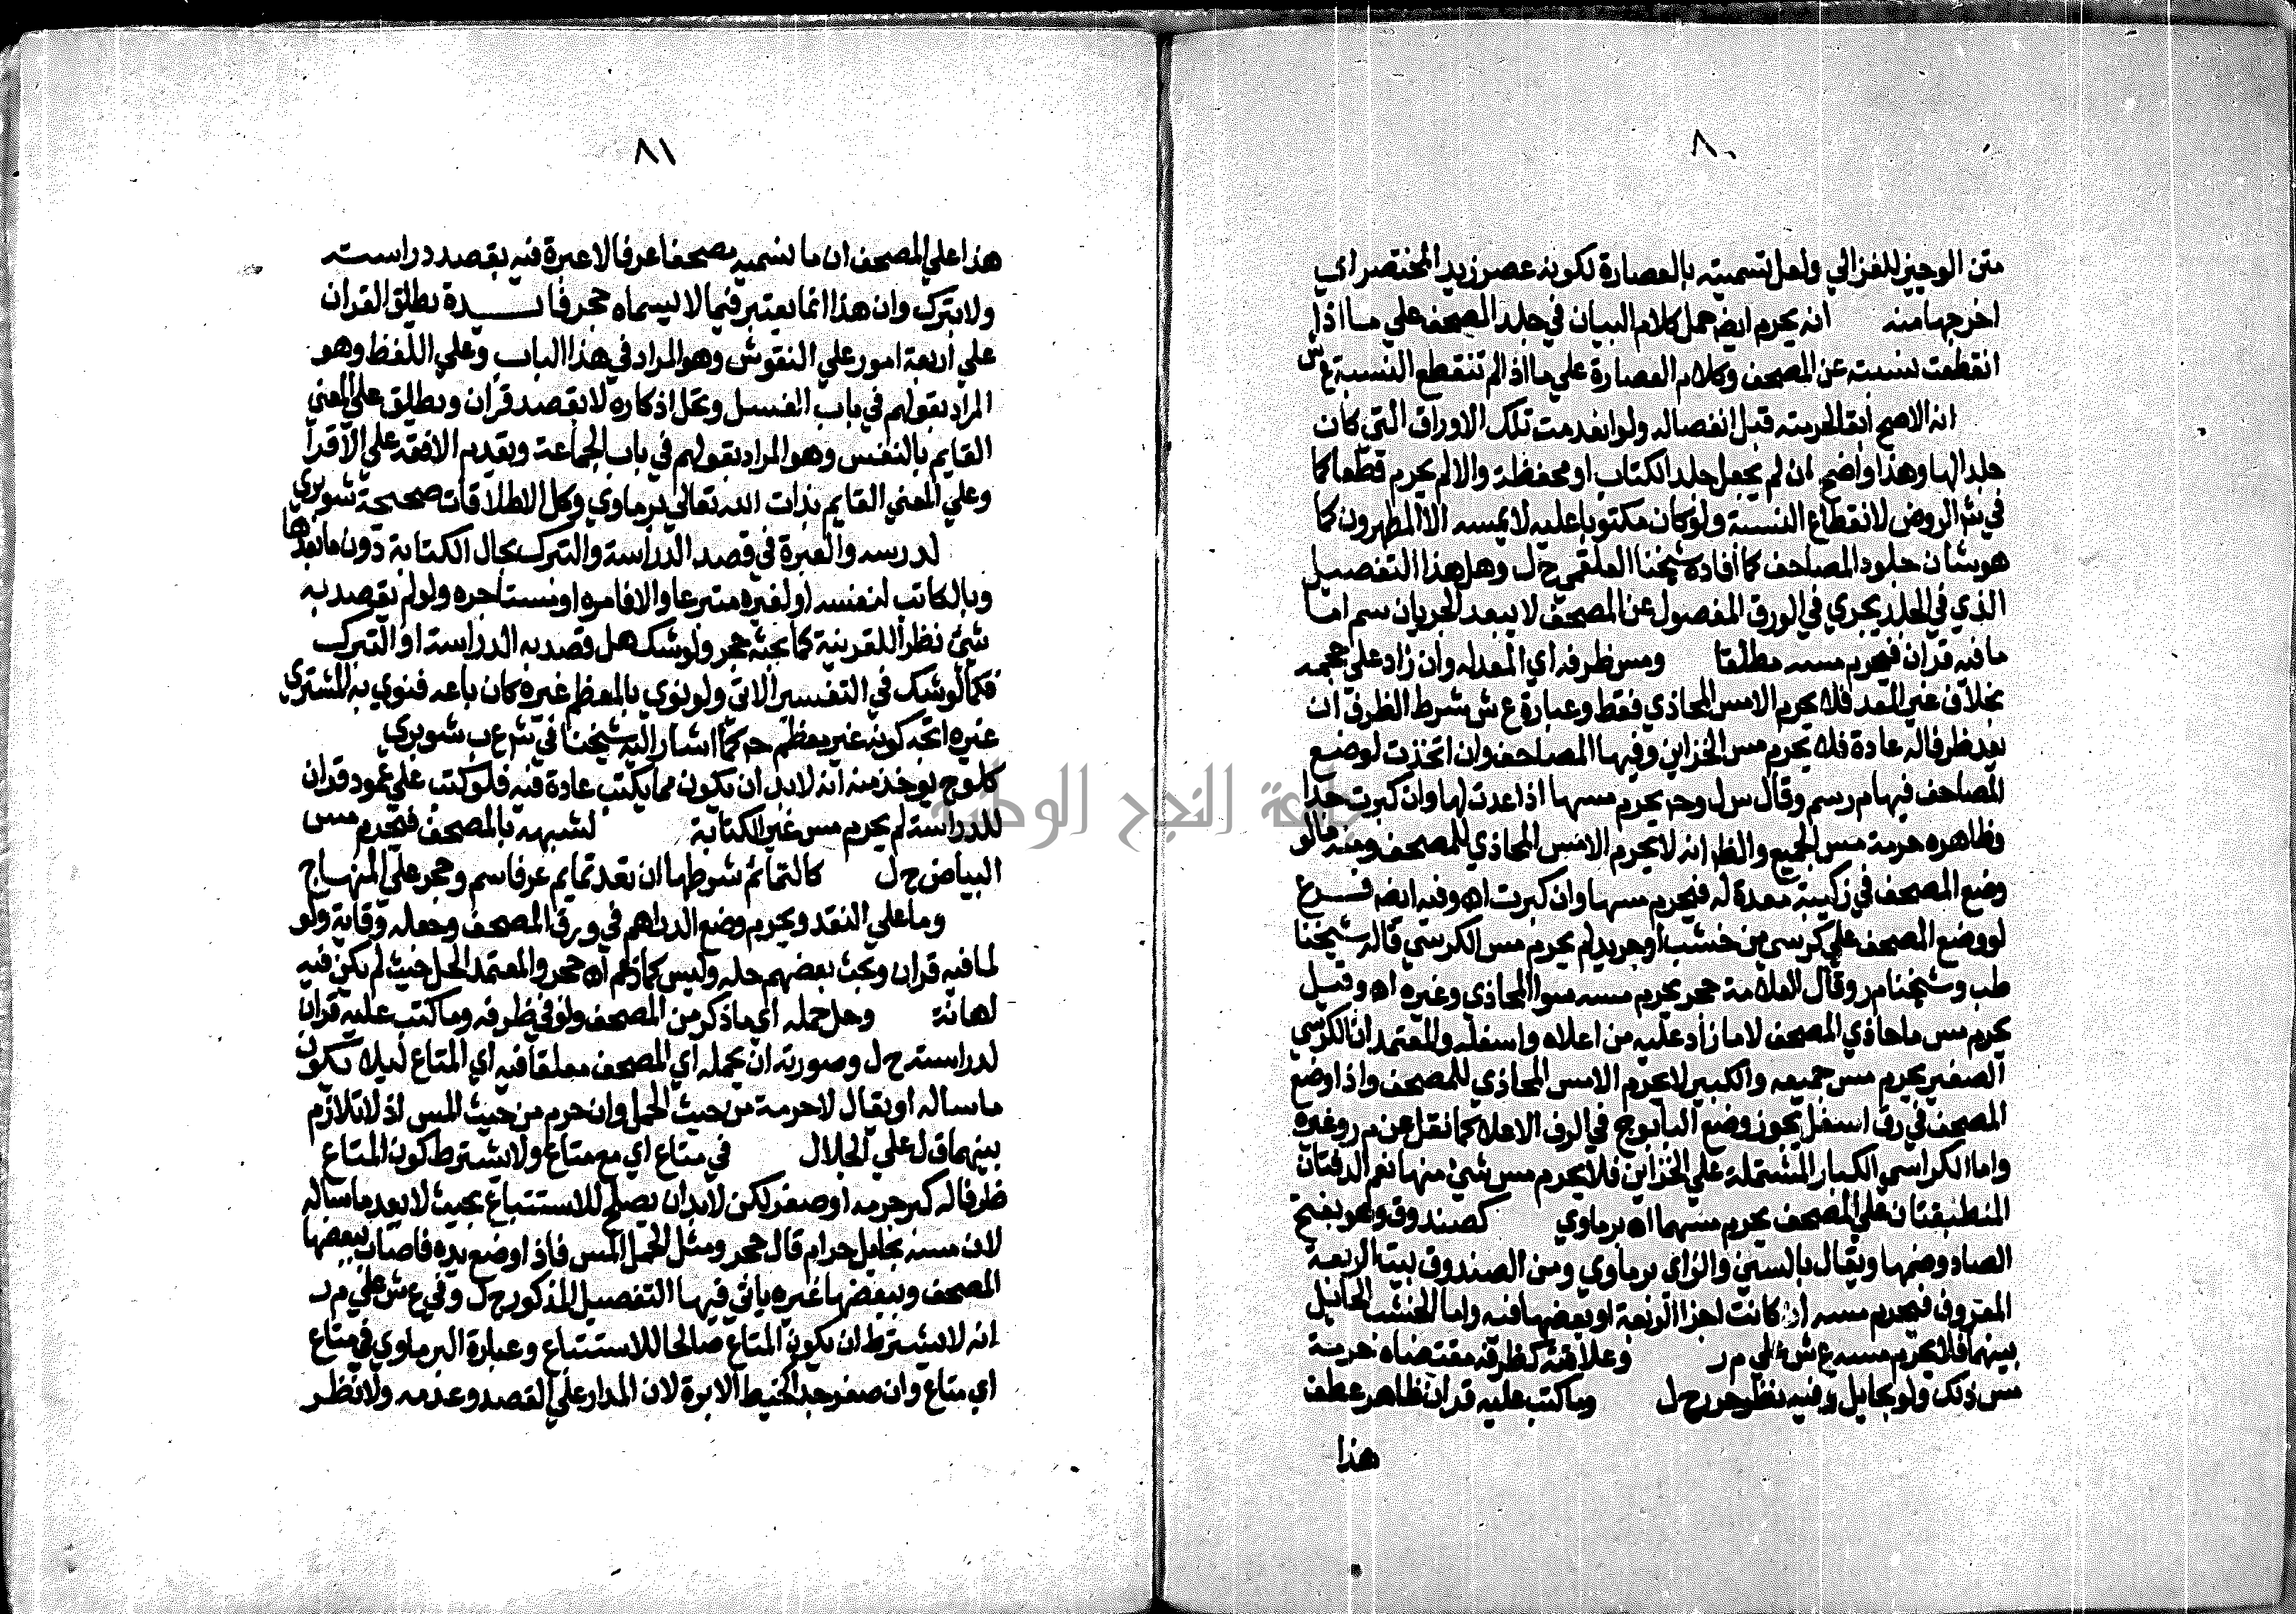 ٨٠
متن الوجيز للغزالي ولعل تسميته بالعصارة لكونه عصر زبد المختصر اي
اخرجها منه انه يحرم ايضا حمل كلام البيان في جلد المصحف علي ما اذا
انقطعت نسبته عن المصحف وكلام العصارة علي ما اذا لم تنقطع النسبة ع ش
انه الاصح ابقا لحرمته قبل انفصاله ولو انعدمت تلك الاوراق التي كان
جلدا لها وهذا واضح ان لم يجعل جلد الكتاب او محفظة والا لم يحرم قطعا كما
في شر الروض لانقطاع النسبة ولو كان مكتوبا عليه لا يمسه الا المطهرون كما
هو شان جلود المصاحف كما افاده شيخنا العلقمي ح ل وهل هذا التفصيل
الذي في الجلد يجري في الورق المفصول عن المصحف لا يبعد الجريان سم اما
ما فيه قران فيحرم مسه مطلقا ومس ظرفه اي المعد له وان زاد علي حجمه
بخلاف غير المعد فلا يحرم الا مس المحاذي فقط وعبارة ع ش شرط الظرف ان
يعد ظرفا له عادة فلا يحرم مس الخزاين وفيها المصاحف وان اتخذت لوضع
المصاحف فيها م ر سم وقال س ل وحج يحرم مسها اذا عدت لها وان كبرت جدا
وظاهره حرمة مس الجميع والظ انه لا يحرم الا مس المحاذي للمصحف ومنه ما لو
وضع المصحف في زكيبة معدة له فيحرم مسها وان كبرت اه وفيه ايضا فرع
لو وضع المصحف علي كرسي من خشب او جريد لم يحرم مس الكرسي قاله شيخنا
طب وشيخنا م ر وقال العلامة حجر يحرم مسه سوا المحاذي وغيره اه وقيل
يحرم مس ما حاذي المصحف لا ما زاد عليه من اعلاه واسفله والمعتمد ان الكرسي
الصغير يحرم مس جميعه والكبير لا يحرم الا مس المحاذي للمصحف واذا وضع
المصحف في رف اسفل يجوز وضع البابوج في الرف الاعلا كما نقل عن م ر وغيره
واما الكراسي الكبار المشتملة علي الخزاين فلا يحرم مس شيئ منها نعم الدفتان
المنطبقتان علي المصحف يحرم مسهما اه برماوي كصندوق وهو بفتح
الصاد وضمها ويقال بالسين والزاي برماوي ومن الصندوق بيت الربعة
المعروف فيحرم مسه ان كانت اجزا الربعة او بعضها فيه واما الخشب الحايل
بينهما فلا يحرم مسه ع ش علي م ر وعلاقته كظرفه مقتضاه حرمة
مس ذلك ولو بحايل وفيه نظر حرر ح ل وما كتب عليه قران ظاهر عطف
هذا
٨١
هذا علي المصحف ان ما يسمي مصحفا عرفا لا عبرة فيه بقصد دراسته
ولا تبرك وان هذا انما يعتبر فيما لا يسماه حجر فايدة يطلق القران
علي اربعة امور علي النقوش وهو المراد في هذا الباب وعلي اللفظ وهو
المراد بقولهم في باب الغسل وتحل اذكاره لا بقصد قران ويطلق علي المعني
القايم بالنفس وهو المراد بقولهم في باب الجماعة ويقدم الافقه علي الاقرا
وعلي المعني القايم بذات الله تعالي برماوي وكل الاطلاقات صحيحة شوبري
لدرسه والعبرة في قصد الدراسة والتبرك بحال الكتابة دون ما بعدها
وبالكاتب لنفسه او لغيره متبرعا والا فامره او مستاجره ولو لم يقصد به
شيئ نظر للقرينة كما بحثه حجر ولو شك هل قصد به الدراسة او التبرك
فكما لو شك في التفسير الاتي ولو نوي بالمعظم غيره كان باعه فنوي به المشتري
غيره اتجه كونه غير معظم حجر كما اشار اليه شيخنا في شرع ب شوبري
كلوح يوخذ منه انه لا بد ان يكون مما يكتب عادة فيه فلو كتب علي عمود قران
للدراسة لم يحرم مس غير الكتابة لشبهه بالمصحف فيحرم مس
البياض ح ل كالتمايم شرطها ان تعد تمايم عرفا سم وحجر علي المنهاج
وما علي النقد ويحرم وضع الدراهم في ورق المصحف وجعله وقاية ولو
لما فيه قران وبحث بعضهم حله وليس كما زعم اه حجر والمعتمد الحل حيث لم يكن فيه
اهانة وحل حمله اي ما ذكر من المصحف ولو في ظرفه وما كتب عليه قران
لدراسته ح ل وصورته ان يحمله اي المصحف معلقا فيه اي المتاع ليلا يكون
ماسا له او يقال لا حرمة من حيث الحمل وان حرم من حيث المس اذ لا تلازم
بينهما ق ل علي الجلال في متاع اي مع متاع ولا يشترط كون المتاع
ظرفا له كبر جرمه او صغر لكن لا بد ان يصلح للاستتباع بحيث لا يعد ماسا له
لان مسه بحايل حرام قال حجر ومثل الحمل المس فاذا وضع يده فاصاب ببعضها
المصحف وببعضها غيره ياتي فيها التفصيل المذكور ح ل وفي ع ش علي م ر
انه لا يشترط ان يكون المتاع صالحا للاستتباع وعبارة البرماوي في متاع
اي متاع وان صغر جدا كخيط الابرة لان المدار علي القصد وعدمه ولا نظر
جامعة النجاح الوطنية